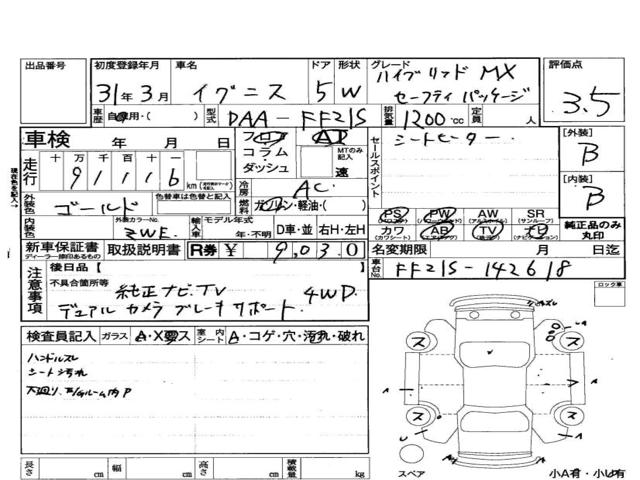 出品番号
初度登録年月
31年3月
車名
イグニス
ドア
5
形状
W
グレード
ハイブリッド MX
セーフティ パッケージ
評価点
3.5
車歴
自家用・( )
型式
DAA-FF21S
排気量
1200 cc
定員
人
車検 年 月 日
フロア
コラム
ダッシュ
AT
MTのみ記入
速
セールスポイント
シートヒーター
[外装]
B
[内装]
B
現在色を記入→
走行
十 万 千 百 十 一
9 1 1 1 6 km
冷房
AC
外装色
ゴールド
色替車は色替前
燃料
ガソリン・軽油・( )
内装色
外装カラーNo.
ZWE
輸入車
モデル年式
年・不明
D車・並
右H・左H
PS PW AW SR
カワ AB TV ナビ
純正品のみ丸印
新車保証書
ディーラー捺印あるもの
取扱説明書
R券 ¥ 9,030
名変期限 月 日迄
車台No.
FF21S-142618
注意事項
後日品[ ]
不具合箇所等
純正ナビ.TV 4WD
デュアル カメラ ブレーキ サポート
ロック車
検査員記入
ガラス
A・X要ス
室内シート
A・コゲ・穴・汚れ・破れ
ハンドルスレ
シート汚れ
ス
ス
ス
ス
長さ cm
幅 cm
高さ cm
積載量 kg
スペア
小A有・小U有